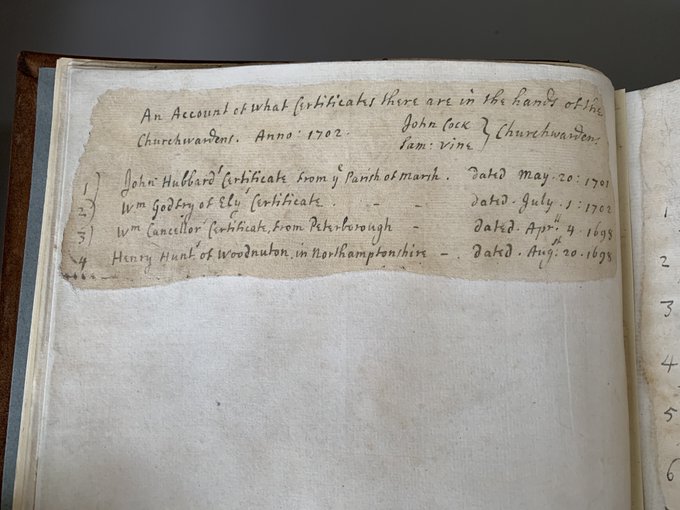 An Account of what Certificates there are in the hands of the
Churchwardens. Anno: 1702. John Cock } Churchwardens
Sam: Vine
1) John Hubbards Certificate from ye Parish of March. dated May. 20: 1701
2) Wm Godfry of Elys Certificate. - - dated. July. 1: 1702
3) Wm Cancellors Certificate, from Peterborough - dated. Aprll 4. 1698
4 Henry Hunts of Woodnuton, in Northamptonshire - . dated. Augst: 20. 1698
1
2
3
4
5
6